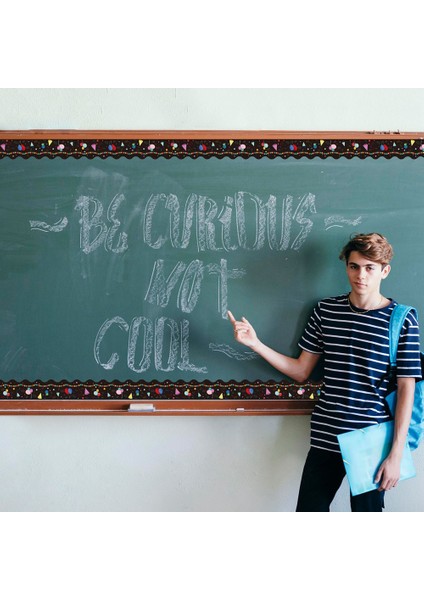 ~ BE CURiOUS ~
NOT
COOL ~